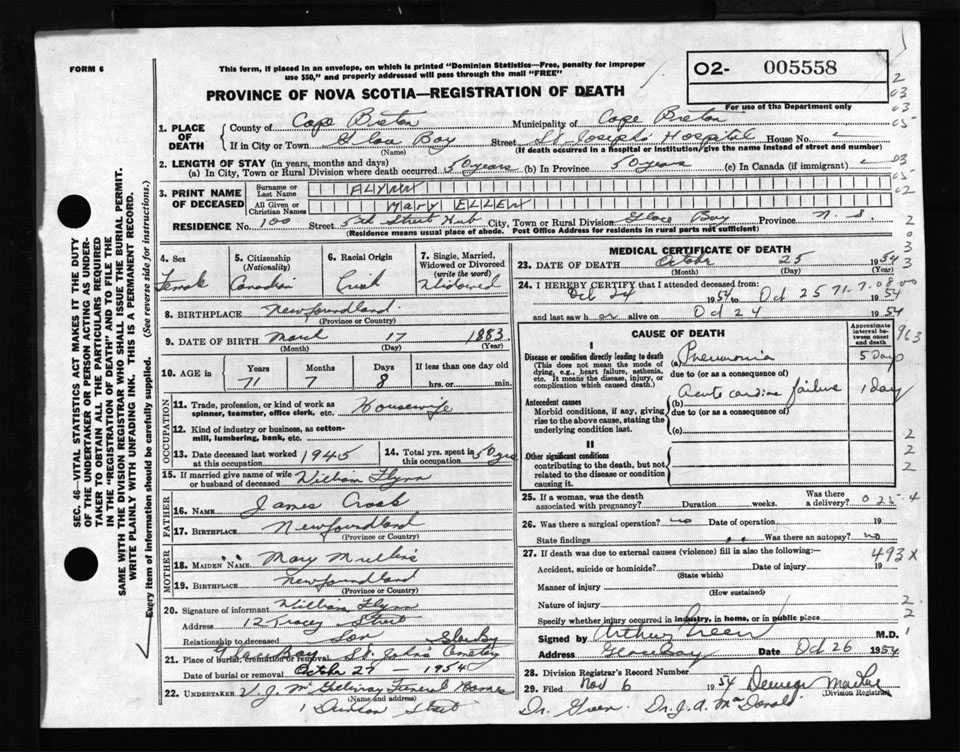 FORM 6
This form, if placed in an envelope, on which is printed "Dominion Statistics—Free, penalty for improper
use $50," and properly addressed will pass through the mail "FREE"
02- 005558
For use of the Department only
PROVINCE OF NOVA SCOTIA—REGISTRATION OF DEATH
1. PLACE OF DEATH
County of Cape Breton Municipality of Cape Breton
If in City or Town Glace Bay (Name) Street St. Joseph's Hospital House No.
(If death occurred in a hospital or institution, give name instead of street and number)
2. LENGTH OF STAY (in years, months and days)
(a) In City, Town or Rural Division where death occurred 50 years (b) In Province 50 years (c) In Canada (if immigrant)
3. PRINT NAME OF DECEASED
Surname or Last Name FLYNN
All Given or Christian Names MARY ELLEN
RESIDENCE No. 100 Street 5th Street Hub City, Town or Rural Division Glace Bay Province N.S.
(Residence means usual place of abode. Post Office Address for residents in rural parts not sufficient)
4. Sex Female
5. Citizenship (Nationality) Canadian
6. Racial Origin Irish
7. Single, Married, Widowed or Divorced (write the word) Widowed
8. BIRTHPLACE Newfoundland
(Province or Country)
9. DATE OF BIRTH March 17 1883
(Month) (Day) (Year)
10. AGE in Years Months Days If less than one day old
71 7 8 hrs. or min.
OCCUPATION
11. Trade, profession or kind of work as spinner, teamster, office clerk, etc. Housewife
12. Kind of industry or business, as cotton-mill, lumbering, bank, etc.
13. Date deceased last worked at this occupation 1945
14. Total yrs. spent in this occupation 50 yrs
15. If married give name of wife or husband of deceased William Flynn
FATHER
16. NAME James
17. BIRTHPLACE Newfoundland
(Province or Country)
MOTHER
18. MAIDEN NAME Mary Mullins
19. BIRTHPLACE Newfoundland
(Province or Country)
20. Signature of informant William Flynn
Address 12 Tracey Street
Relationship to deceased Son
21. Place of burial, cremation or removal Glace Bay St. John's Cemetery
Date of burial or removal October 27 - 1954
22. UNDERTAKER V. J. McGillivray Funeral Home
(Name and address)
1 Dunlop Street
MEDICAL CERTIFICATE OF DEATH
23. DATE OF DEATH October 25 1954
(Month) (Day) (Year)
24. I HEREBY CERTIFY that I attended deceased from:
Oct 24 1954 to Oct 25 1954
and last saw her alive on Oct 24 1954
CAUSE OF DEATH
Approximate interval between onset and death
I
Disease or condition directly leading to death (a) Pneumonia 5 Days
(This does not mean the mode of dying, e.g., heart failure, asthenia, etc. It means the disease, injury, or complication which caused death)
due to (or as a consequence of)
Antecedent causes (b) Acute cardiac failure 1 Day
Morbid conditions, if any, giving rise to the above cause, stating the underlying condition last.
due to (or as a consequence of)
(c)
II
Other significant conditions
contributing to the death, but not related to the disease or condition causing it.
25. If a woman, was the death associated with pregnancy? Duration weeks. Was there a delivery?
26. Was there a surgical operation? no Date of operation 19
State findings Was there an autopsy? no
27. If death was due to external causes (violence) fill in also the following:— 493X
Accident, suicide or homicide? Date of injury 19
(State which)
Manner of injury
(How sustained)
Nature of injury
Specify whether injury occurred in industry, in home, or in public place
Signed by Arthur Green M.D.
Address Glace Bay Date Oct 26 1954
28. Division Registrar's Record Number
29. Filed Nov 6 1954
(Division Registrar)
Dr. Green. Dr. J. A. McDonald
SEC. 46—VITAL STATISTICS ACT MAKES IT THE DUTY
OF THE UNDERTAKER OR PERSON ACTING AS UNDER-
TAKER TO OBTAIN ALL THE PARTICULARS REQUIRED
IN THE "REGISTRATION OF DEATH" AND TO FILE THE
SAME WITH THE DIVISION REGISTRAR WHO SHALL ISSUE THE BURIAL PERMIT.
WRITE PLAINLY WITH UNFADING INK. THIS IS A PERMANENT RECORD.
Every item of information should be carefully supplied. (See reverse side for instructions.)